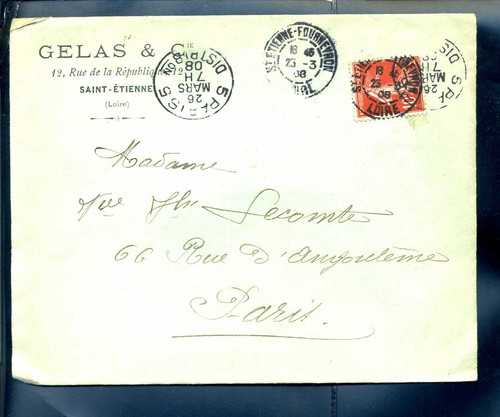 GELAS & Cie
12, Rue de la République, 12
SAINT-ÉTIENNE
(Loire)
PARIS 5 DISTRI
7H
26
MARS
08
ST ETIENNE-FOURNEYRON
18 45
25 -3
08
LOIRE
18 45
25
08
LOIRE
5 DIST
7H
MARS
26
Madame
Vve Jh Lecomte
66 Rue d'Angoulême
Paris.